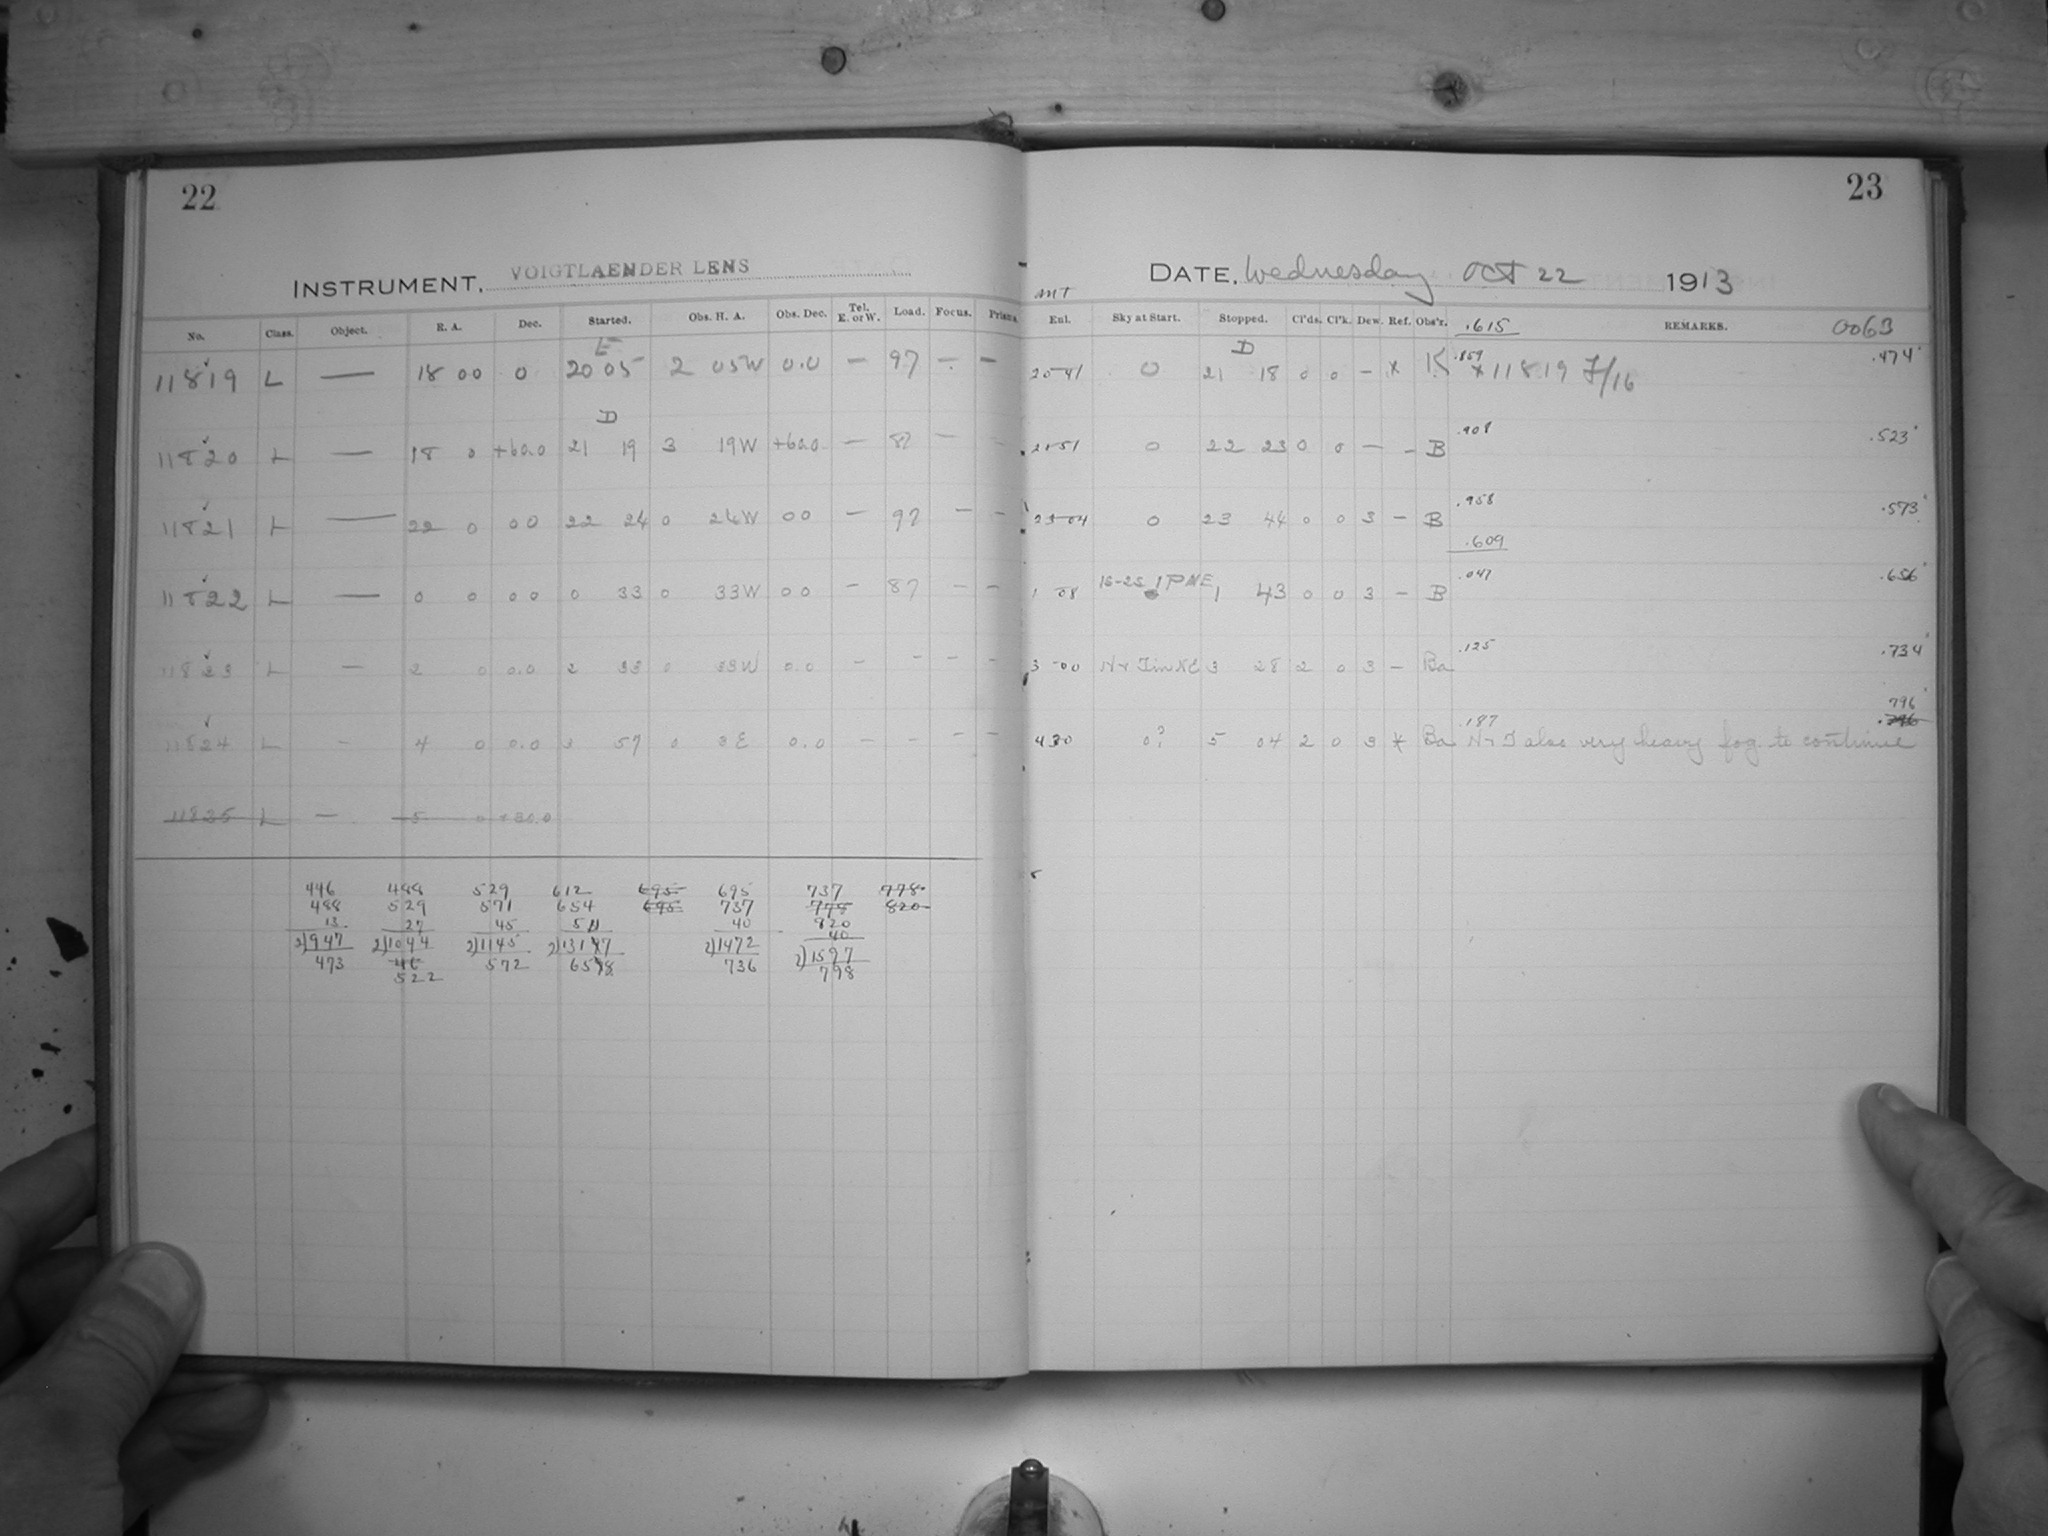 22
INSTRUMENT. VOIGTLAENDER LENS
No. Class. Object. R. A. Dec. Started. Obs. H. A. Obs. Dec. Tel. E. or W. Load. Focus. Prisms.
11819 L — 18 00 0 E 20 05 2 05W 0.0 — 97 — —
11820 L — 18 0 +60.0 D 21 19 3 19W +60.0 — 87 — —
11821 L — 22 0 00 22 24 0 24W 00 — 97 — —
11822 L — 0 0 00 0 33 0 33W 00 — 87 — —
11823 L — 2 0 0.0 2 33 0 33W 0.0 — — — —
11824 L — 4 0 0.0 3 57 0 3E 0.0 — — — —
11825 L — 5 0 +30.0
446 488 529 612 695 695 737 778
488 529 571 654 695 737 778 820
13 27 45 51 40 820
2)947 2)1044 2)1145 2)1317 2)1472 40
473 46 572 658 736 2)1597
522 798
23
DATE, Wednesday Oct 22 1913
MT
Eul. Sky at Start. Stopped. Cl'ds. Cl'k. Dew. Ref. Obs'r. .615 REMARKS. 0063
20-41 0 D 21 18 0 0 — x K .859 x11819 F/16 .474
21-51 0 22 23 0 0 — — B .908 .523
23-04 0 23 44 0 0 3 — B .958 .573
.609
1 08 16-25 1PNE 1 43 0 0 3 — B .047 .656
3-00 N+T in NE 3 28 2 0 3 — Ba .125 .734
796
4 30 0? 5 04 2 0 3 * Ba .187 N+T also very heavy fog to continue